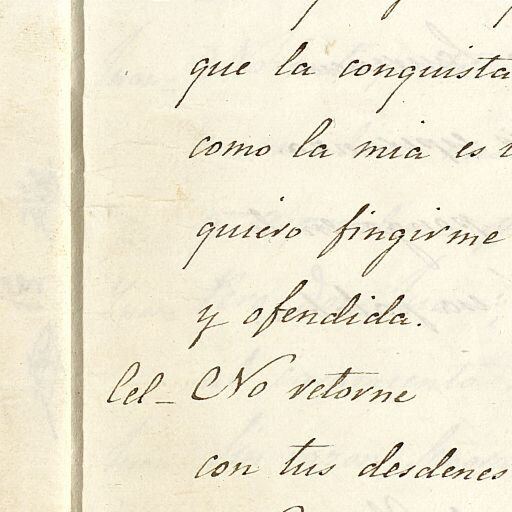 que la conquista
como la mia es
quiero fingirme
y ofendida.
Cel- No retorne
con tus desdenes